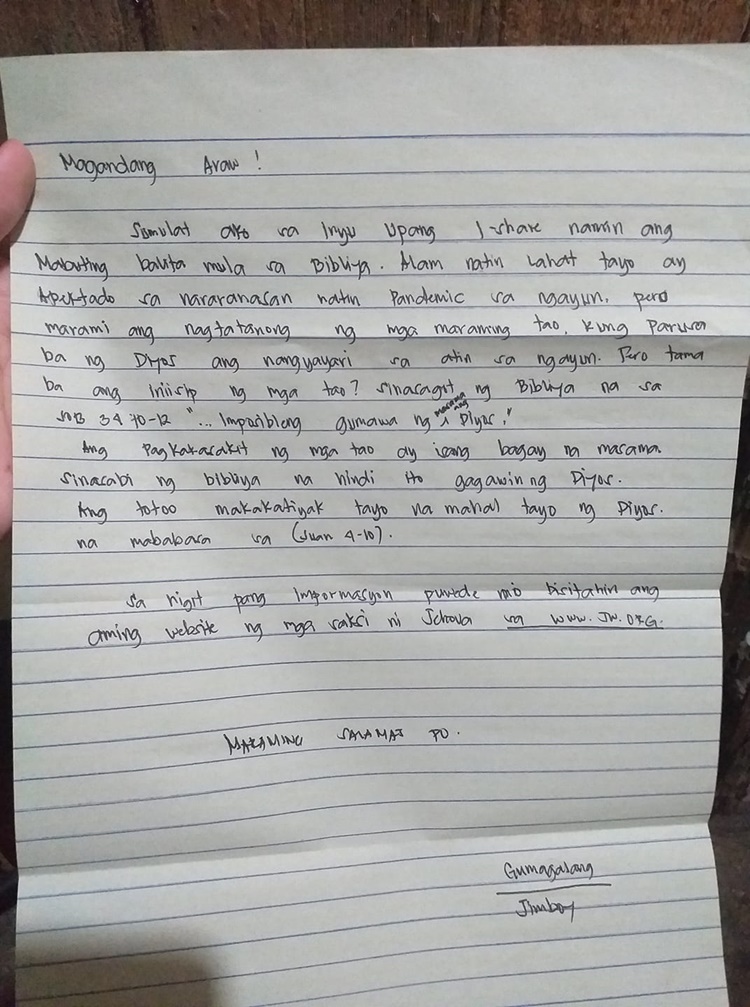 Magandang Araw !
Sumulat ako sa Inyu Upang I-share namin ang
Mabuting balita mula sa Bibliya. Alam natin Lahat tayo ay
Apektado sa nararanasan natin Pandemic sa ngayun, pero
marami ang nagtatanong ng mga maraming tao, kung Parusa
ba ng Diyos ang nangyayari sa atin sa ngayun. Pero tama
ba ang Iniisip ng mga tao? Sinasagot ng Bibliya na sa
JOB 34 10-12 "... Imposibleng gumawa ng masama ang Diyos."
Ang Pagkakasakit ng mga tao ay isang bagay na masama.
Sinasabi ng bibliya na hindi Ito gagawin ng Diyos.
Ang totoo makakatiyak tayo na mahal tayo ng Diyos.
na mababasa sa (Juan 4-10).
Sa higit pang Impormasyon puwede mo bisitahin ang
aming website ng mga saksi ni Jehova sa www.JW.ORG.
MARAMING SALAMAT PO.
Gumagalang
Jimboy